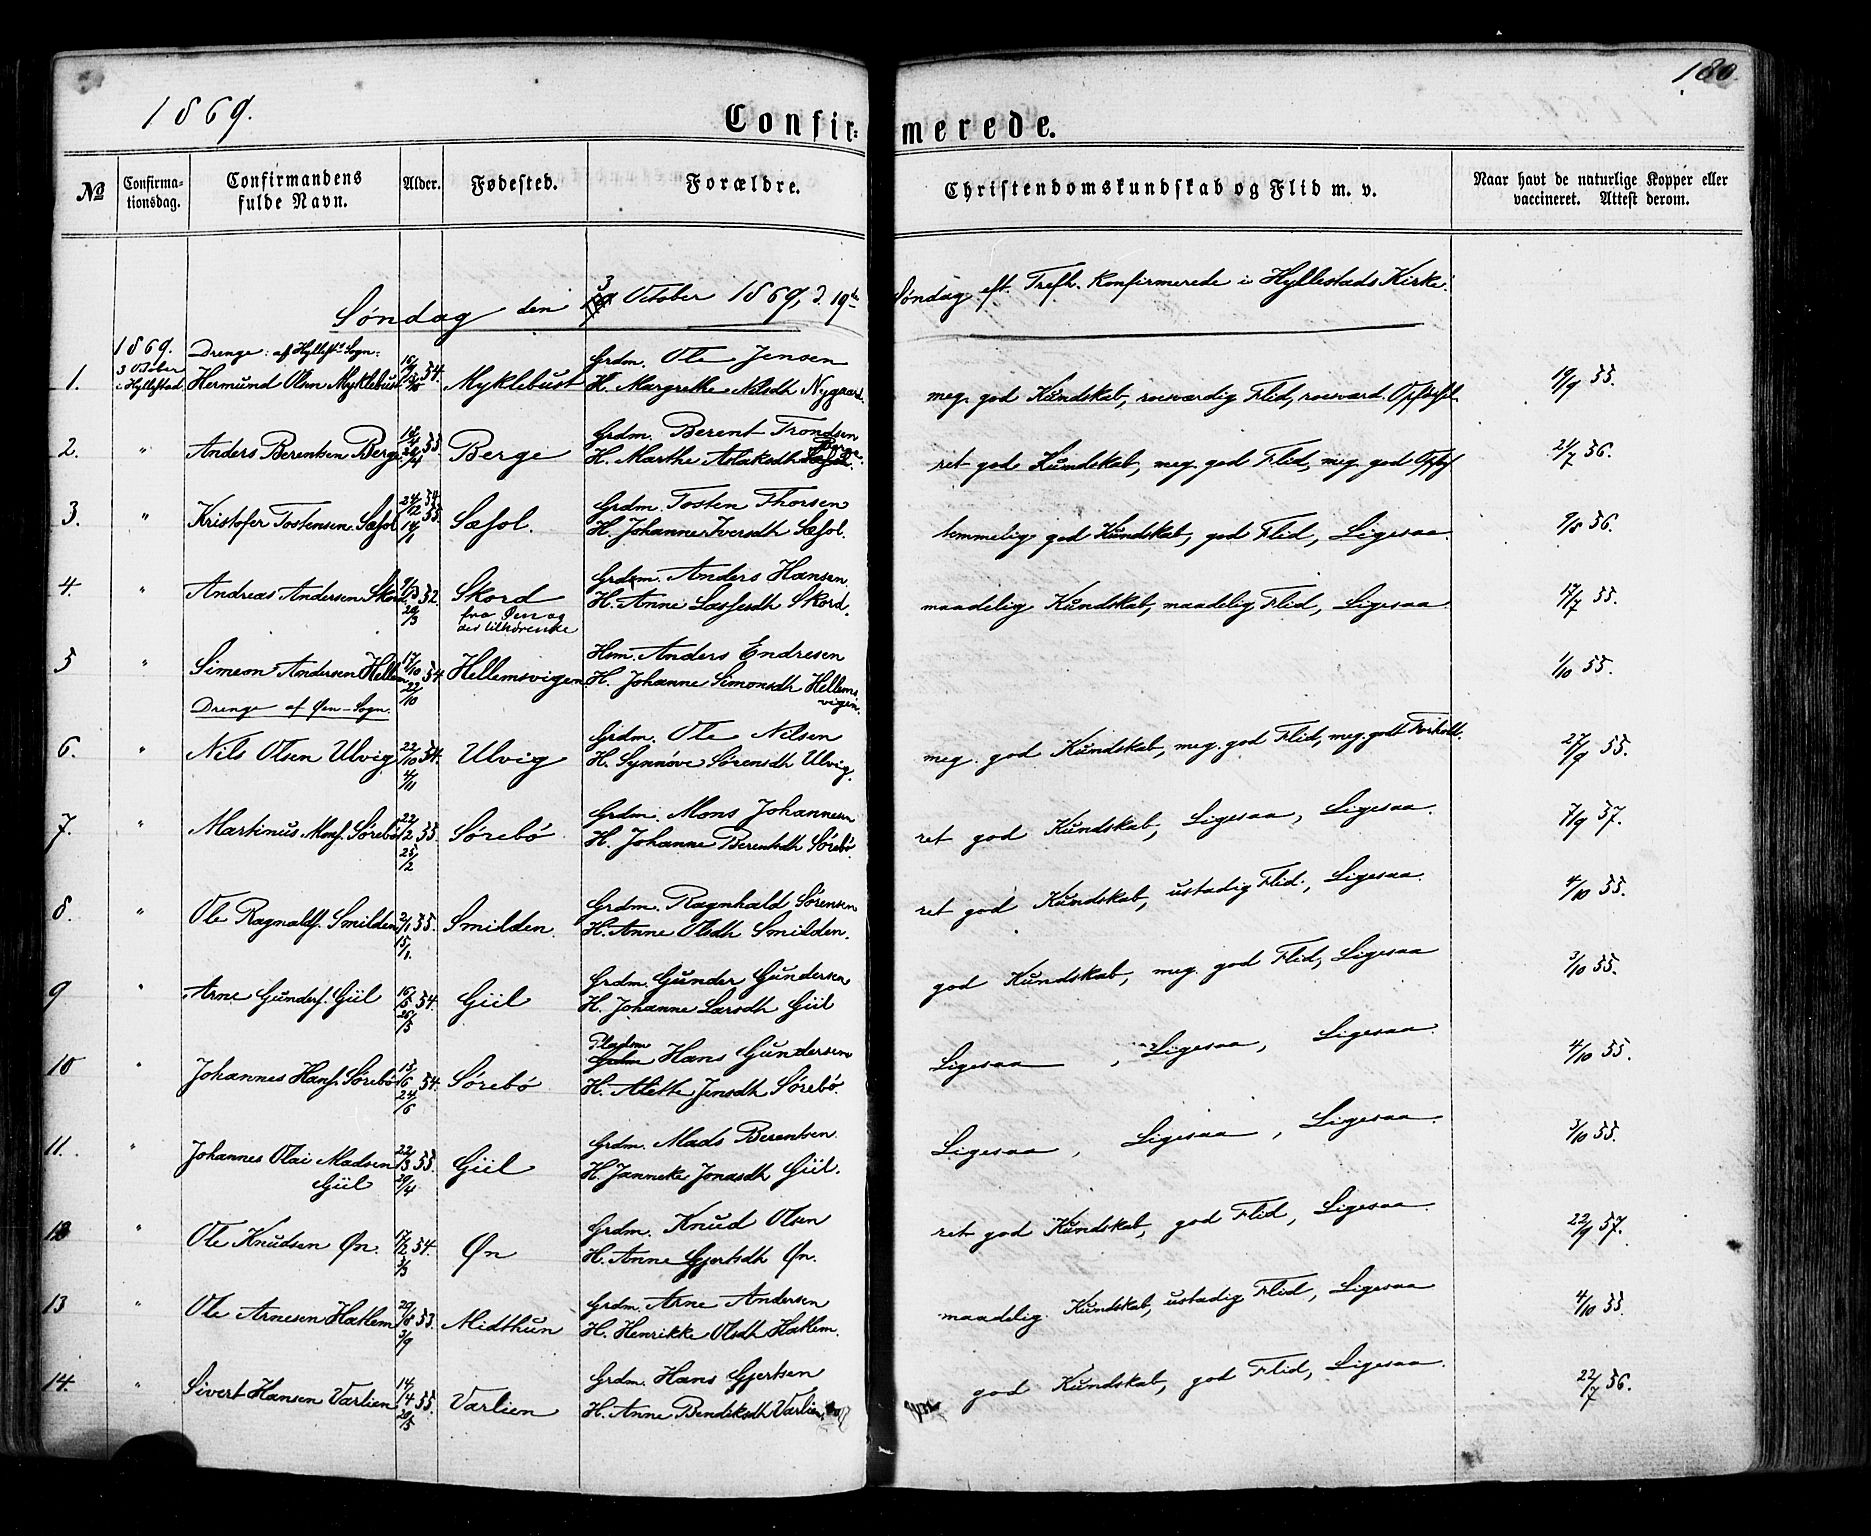 1869.
180.
Confir-
merede.
No
Confirma-
tionsdag.
Confirmandens
fulde Navn.
Alder.
Fødested.
Forældre.
Christendomskundskab og Flid m. v.
Naar havt de naturlige Kopper eller
vaccineret. Attest derom.
Søndag den 3 October 1869, d. 19de Søndag eft. Trefh. Konfirmerede i Hyllestads Kirke.
1869. Drenge: af Hyllest. Sogn:
3 October
i Hyllestad
Grdm. Ole Jensen
1. Hermund Olsen Myklebust 54. Myklebust H. Margrethe Nilsdtr Nygaard. meg. god Kundskab, roesværdig Flid, roesværd. 19/9 55.
Grdm. Berent Trondsen
2. " Anders Berentsen Berge 55 Berge H. Marthe Aslaksdtr Berge. ret god Kundskab, meg. god Flid, meg. god Opf. 21/7 56.
Grdm. Tosten Thorsen
3. " Kristofer Tostensen Sæsol 24/12 54. 14/1 55. Sæsol. H. Johanne Iversdtr Sæsol. temmelig god Kundskab, god Flid, Ligesaa. 9/8 56.
Grdm. Anders Hansen.
4. " Andreas Andersen Skord 52. 20/3 Skord H. Anne Lassesdtr Skord. maadelig Kundskab, maadelig Flid, Ligesaa. 17/7 55.
fra Øen og
Hsm. Anders Endresen
5 " Simeon Andersen Hellem 17/10 54 22/10 Hellemsvigen. H. Johanne Simonsdtr Hellems- 1/10 55.
vigen.
Drenge af Øen-Sogn.
Grdm. Ole Nilsen
6. " Nils Olsen Ulvig 22/10 54. 4/11 Ulvig H. Synnøve Sørensdtr Ulvig. meg. god Kundskab, meg. god Flid, meg. godt Forhold. 27/9 55.
Grdm. Mons Johannesen
7. " Martinus Mons. Sørebø 22/2 55. 25/2 Sørebø H. Johanne Berentsdtr Sørebø. ret god Kundskab, Ligesaa, Ligesaa. 7/9 57.
Grdm. Ragnhald Sørensen
8. " Ole Ragnalds. Smilden 2/1 55. 15/1. Smilden. H. Anne Olsdtr Smilden. ret god Kundskab, ustadig Flid, Ligesaa. 4/10 55.
Grdm. Gunder Gundersen
9 " Arne Gunders. Giil 16/5 54. 25/5 Giil H. Johanne Larsdtr Giil god Kundskab, meg. god Flid, Ligesaa 3/10 55.
Pladsm. Hans Gundersen
10 " Johannes Hans. Sørebø 15/6 54. 24/6 Sørebø H. Alette Jensdtr Sørebø. Ligesaa, Ligesaa, Ligesaa 4/10 55.
Grdm. Mads Berentsen.
11. " Johannes Olai Madsen 22/3 55. 29/4 Giil H. Janneke Jonasdtr Giil. Ligesaa, Ligesaa, Ligesaa. 3/10 55.
Giil
Grdm. Knud Olsen
12 " Ole Knudsen Øn. 17/2 54. 3/3 Øn H. Anne Gjertsdtr Øn. ret god Kundskab, god Flid, Ligesaa. 22/9 57.
Grdm. Arne Andersen
13 " Ole Arnesen Hatlem 29/8 53. 3/9 Midthun H. Henrikke Olsdtr Hatlem. maadelig Kundskab, ustadig Flid, Ligesaa 4/10 55.
Grdm. Hans Gjertsen
14. " Sivert Hansen Varlien 14/4 55. 20/5 Varlien H. Anne Bendiksdtr Varlien god Kundskab, god Flid, Ligesaa. 22/7 56.